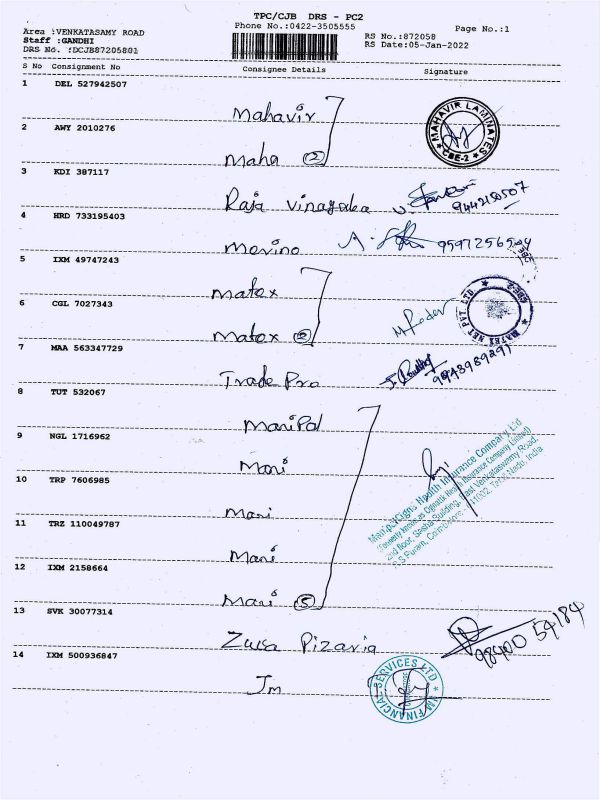 TPC/CJB DRS - PC2
Phone No.:0422-3505555
Page No.:1
Area :VENKATASAMY ROAD
Staff :GANDHI
DRS No. :DCJB87205801
RS No.:872058
RS Date:05-Jan-2022
S No Consignment No Consignee Details Signature
1 DEL 527942507
Mahavir
MAHAVIR LAMINATES
CBE-2
2 AWY 2010276
Maha (2)
3 KDI 387117
Raja Vinayaka
4 HRD 733195403
Merino 9597256504
5 IXM 49747243
Matex
6 CGL 7027343
Matex (2)
7 MAA 563347729
Trade Pro 9943989291
8 TUT 532067
Manipal
9 NGL 1716962
Mani
ManipalCigna Health Insurance Company Ltd
(Formerly known as CignaTTK Health Insurance Company Limited)
2nd floor, Sesha Building, East Venkataswamy Road,
R.S Puram, Coimbatore - 641002, Tamil Nadu, India
10 TRP 7606985
Mani
11 TRZ 110049787
Mani
12 IXM 2158664
Mani (5)
13 SVK 30077314
Pizaria 98400 54184
14 IXM 500936847
Jm
JM FINANCIAL SERVICES LTD